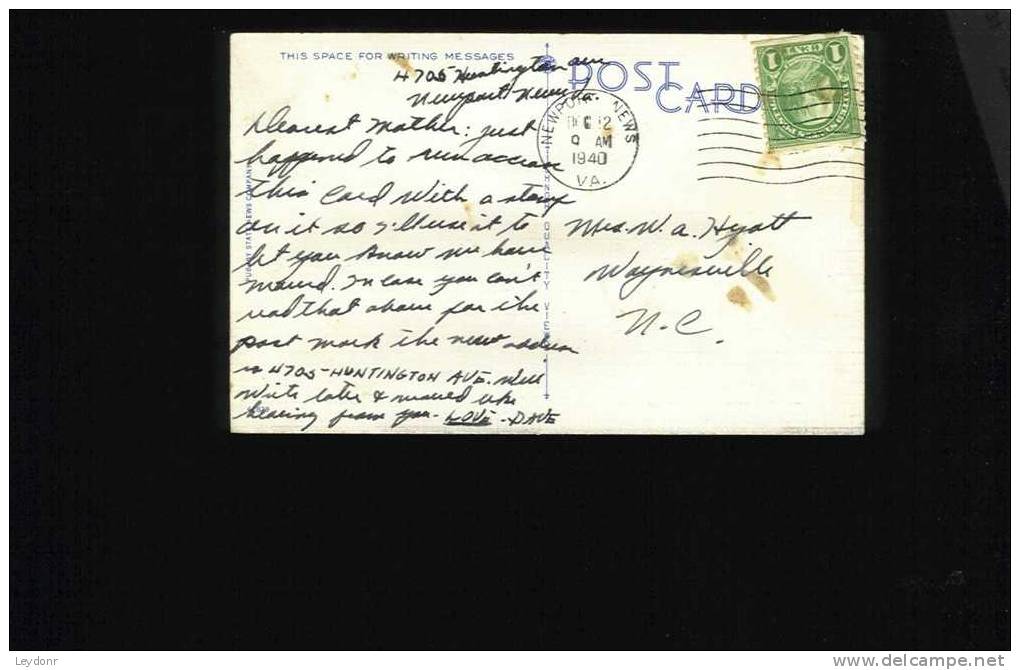 THIS SPACE FOR WRITING MESSAGES
POST
CARD
4705 Huntington ave
Newport News
Va.
Dearest Mother: just
happened to run across
this card with a stamp
on it so I'll use it to
let you know we have
moved. In case you can't
read that above for the
post mark the new address
is 4705-HUNTINGTON AVE. Will
write later & would like
hearing from you - LOVE - DAVE
NEWPORT NEWS
DEC 12
9 AM
1940
VA.
1
1
Mrs. W. A. Hyatt
Waynesville
N.C.
QUALITY VIEWS
NEWS COMPANY
Leydonr
delcampe.net